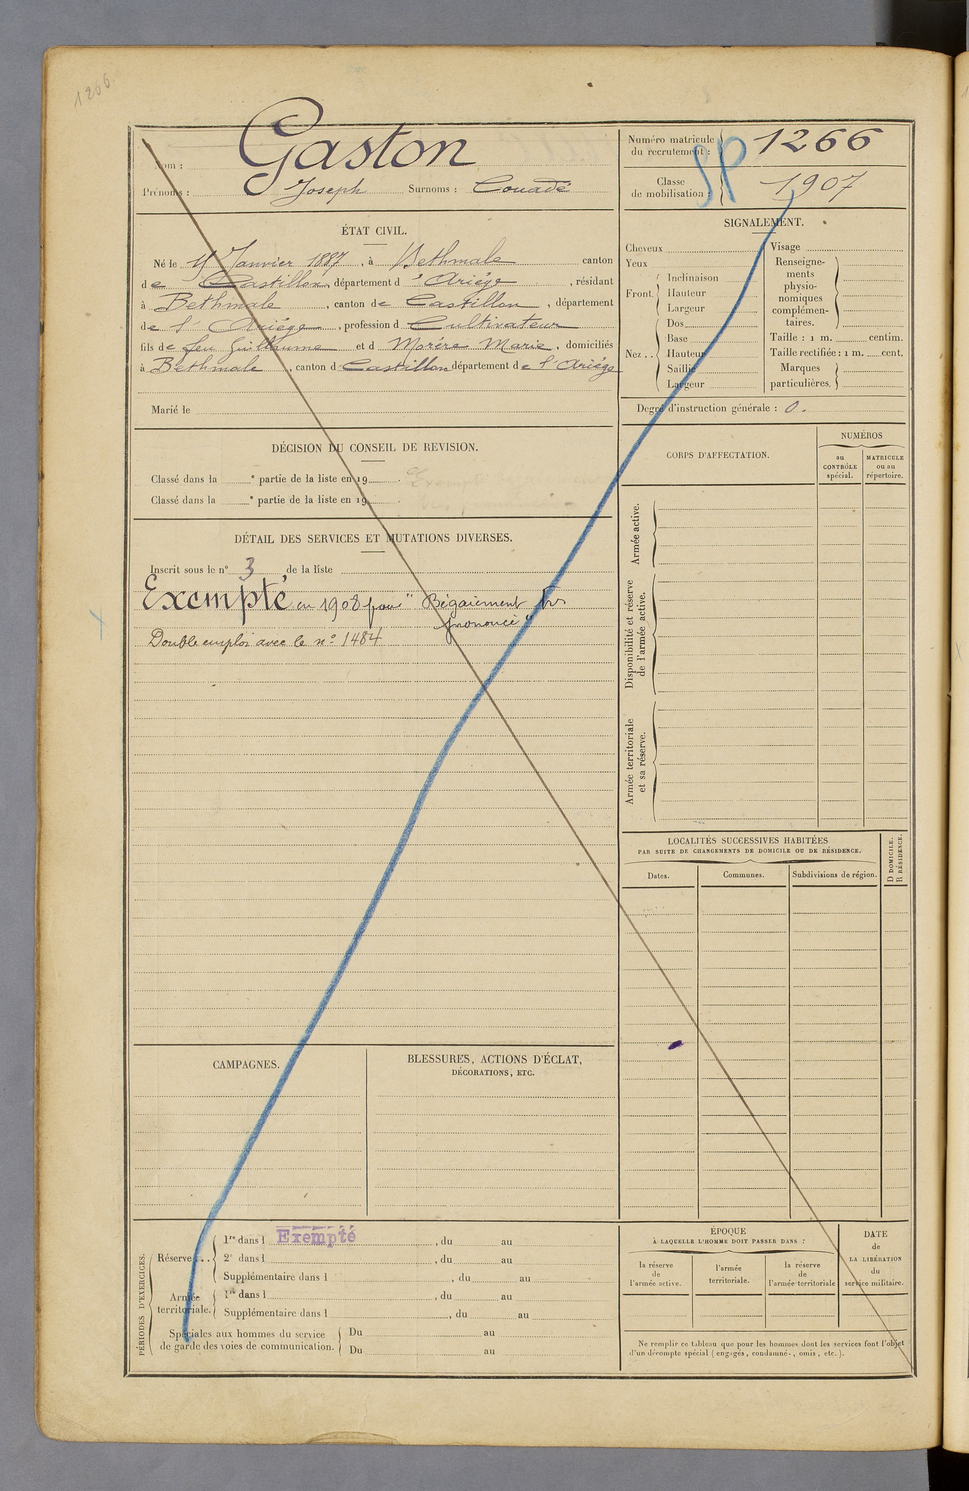 1266.
Nom : Gaston
Prénoms : Joseph Surnoms : Couadé
Numéro matricule du recrutement : 1266
SP
Classe de mobilisation : 1907
ÉTAT CIVIL.
Né le Janvier 1887, à Bethmale canton
de Castillon, département d l'Ariége, résidant
à Bethmale, canton de Castillon, département
de l'Ariége, profession d Cultivateur
fils de feu Guillaume et d Morére Marie, domiciliés
à Bethmale, canton d Castillon département de l'Ariége
Marié le
SIGNALEMENT.
Cheveux
Yeux
Front.
Inclinaison
Hauteur
Largeur
Nez..
Dos
Base
Hauteur
Saillie
Largeur
Visage
Renseigne-
ments
physio-
nomiques
complémen-
taires.
Taille : 1 m. centim.
Taille rectifiée : 1 m. cent.
Marques
particulières.
Degré d'instruction générale : 0.
DÉCISION DU CONSEIL DE REVISION.
Classé dans la e partie de la liste en 19 .
Classé dans la e partie de la liste en 19 .
DÉTAIL DES SERVICES ET MUTATIONS DIVERSES.
Inscrit sous le n° 3 de la liste
Exempté en 1908 pour " Bégaiement
prononcé "
Double emploi avec le n° 1484
CORPS D'AFFECTATION.
NUMÉROS
au
CONTRÔLE
spécial.
MATRICULE
ou au
répertoire.
Armée active.
Disponibilité et réserve
de l'armée active.
Armée territoriale
et sa réserve.
LOCALITÉS SUCCESSIVES HABITÉES
PAR SUITE DE CHANGEMENTS DE DOMICILE OU DE RÉSIDENCE.
Dates.
Communes.
Subdivisions de région.
D DOMICILE.
R RÉSIDENCE.
CAMPAGNES.
BLESSURES, ACTIONS D'ÉCLAT,
DÉCORATIONS, ETC.
PÉRIODES D'EXERCICES.
Réserve...
1re dans l Exempté , du au
2e dans l , du au
Supplémentaire dans l , du au
Armée
territoriale.
1re dans l , du au
Supplémentaire dans l , du au
Spéciales aux hommes du service
de garde des voies de communication.
Du au
Du au
ÉPOQUE
À LAQUELLE L'HOMME DOIT PASSER DANS :
la réserve
de
l'armée active.
l'armée
territoriale.
la réserve
de
l'armée territoriale
DATE
de
LA LIBÉRATION
du
service militaire.
Ne remplir ce tableau que pour les hommes dont les services font l'objet
d'un décompte spécial (engagés, condamnés, omis, etc.).